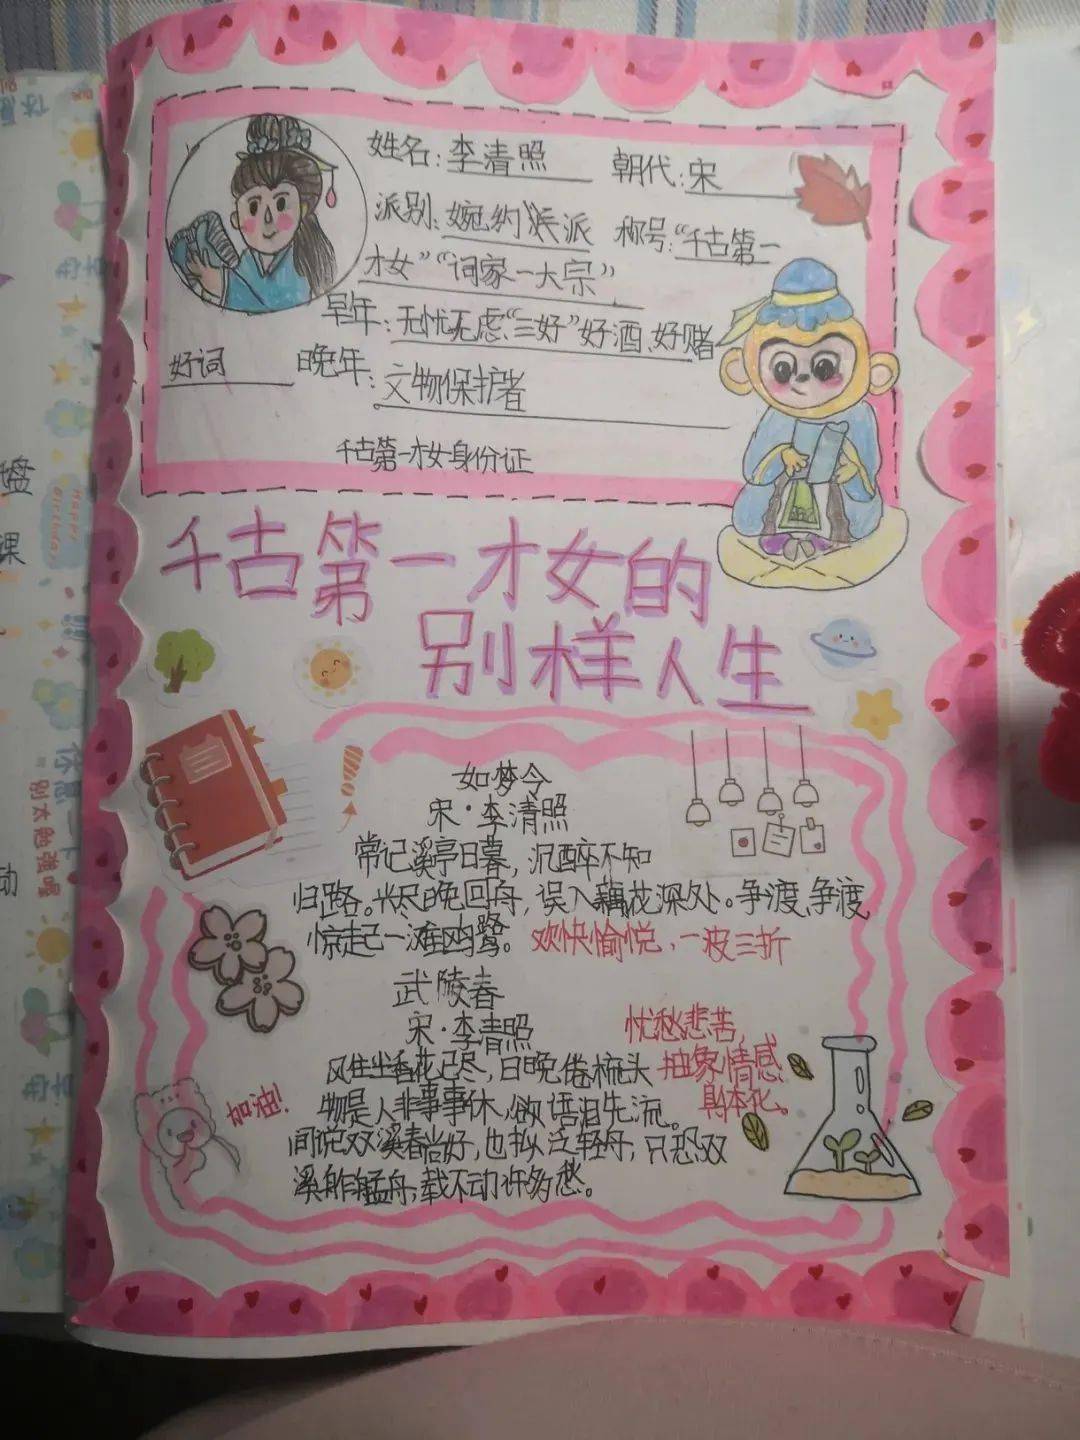 姓名:李清照 朝代:宋
派别:婉约派 称号:“千古第一
才女”“词家一大宗”
早年:无忧无虑“三好”好酒、好赌
好词 晚年:文物保护者
千古第一才女身份证
千古第一才女的
别样人生
如梦令
宋·李清照
常记溪亭日暮,沉醉不知
归路。兴尽晚回舟,误入藕花深处。争渡,争渡,
惊起一滩鸥鹭。 欢快愉悦,一波三折
武陵春
宋·李清照 忧愁悲苦,
风住尘香花已尽,日晚倦梳头 抽象情感
物是人非事事休,欲语泪先流。 具体化。
加油!
闻说双溪春尚好,也拟泛轻舟,只恐双
溪舴艋舟,载不动许多愁。
Happy
Birthday
盘
课
别太勉强喔